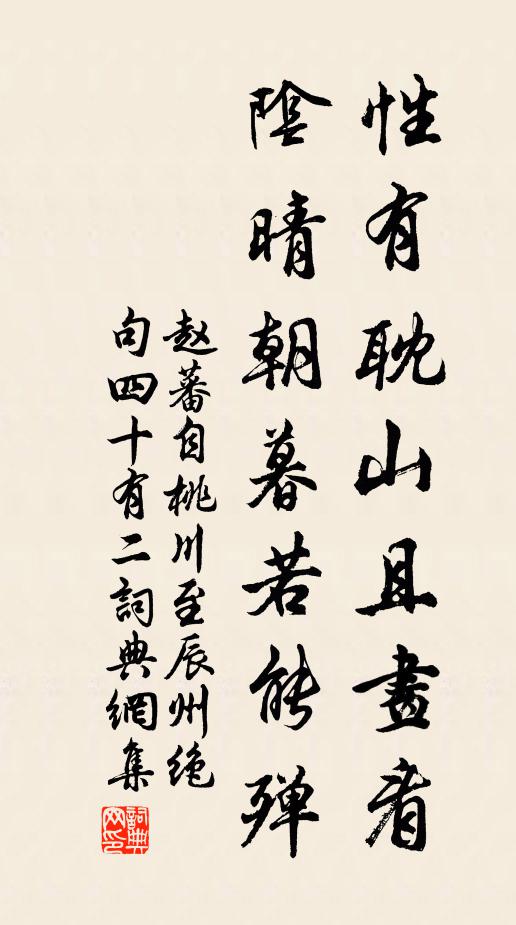 性有耽山且盡看
陰晴朝暮若能殫
赵蕃自桃川至辰州绝
句四十有二詞典網集
詞典
网印